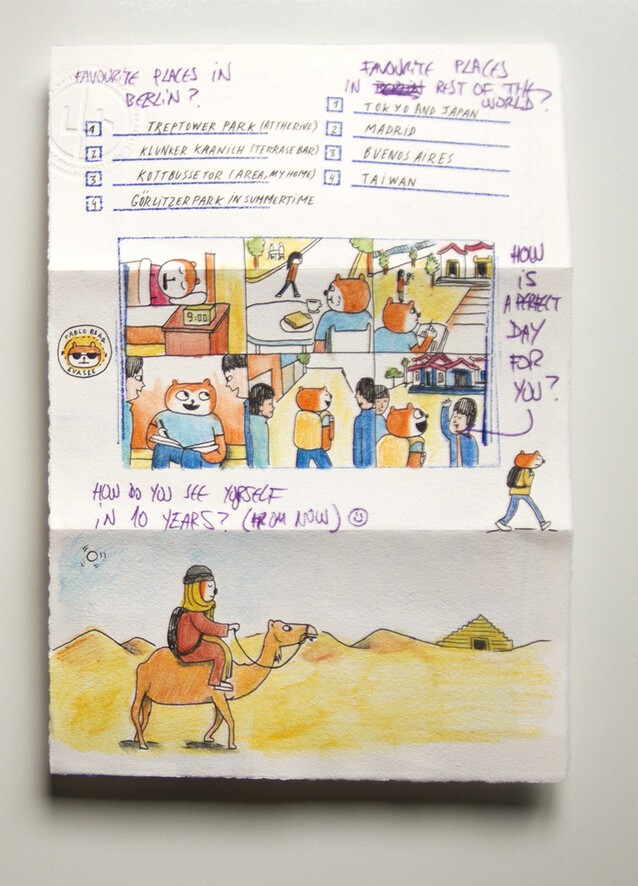 FAVOURITE PLACES IN
BERLIN?
1 TREPTOWER PARK (AT THE RIVE)
2 KLUNKER KAANICH (TERRASE BAR)
3 KOTTBUSSETOR (AREA, MY HOME)
4 GÖRLITZERPARK IN SUMMERTIME
FAVOURITE PLACES
IN BERLIN REST OF THE
WORLD?
1 TOKYO AND JAPAN
2 MADRID
3 BUENOS AIRES
4 TAIWAN
9:00
HOW
IS
A PERFECT
DAY
FOR
YOU?
PABLO BEAR
EVASEE
HOW DO YOU SEE YOURSELF
IN 10 YEARS? (FROM NOW)